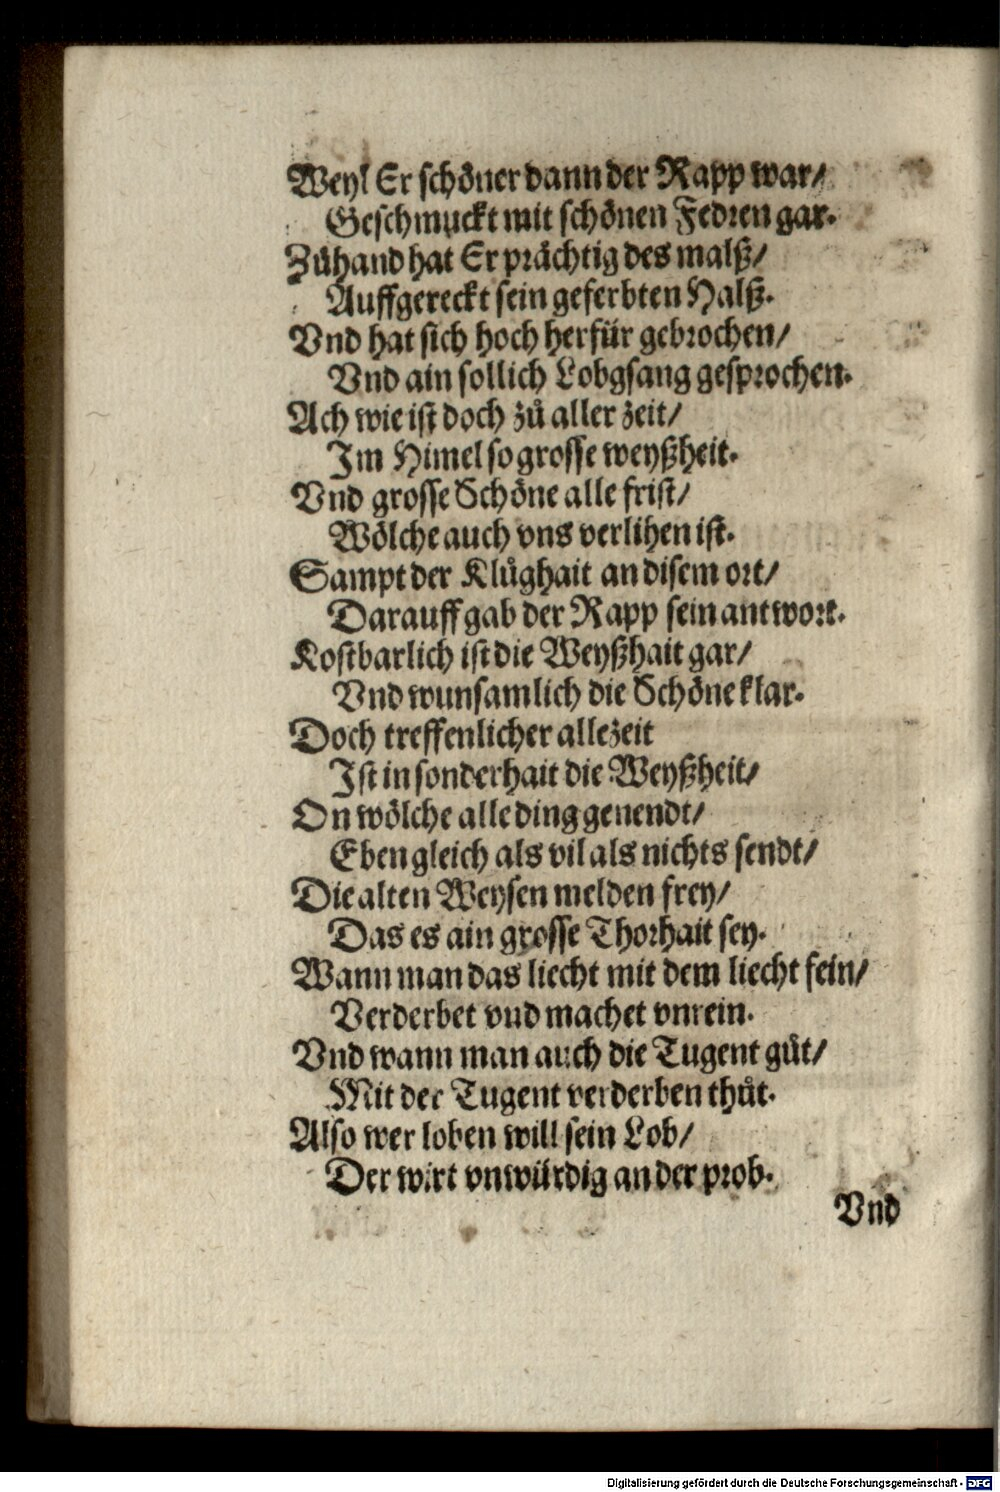 Weyl Er schöner dann der Rapp war/
Geschmuckt mit schönen Fedren gar.
Zůhand hat Er prächtig des malß/
Auffgereckt sein geferbten Halß.
Vnd hat sich hoch herfür gebrochen/
Vnd ain sollich Lobgsang gesprochen.
Ach wie ist doch zů aller zeit/
Im Himel so grosse weyßheit.
Vnd grosse Schöne alle frist/
Wölche auch vns verlihen ist.
Sampt der Klůghait an disem ort/
Darauff gab der Rapp sein antwort.
Kostbarlich ist die Weyßhait gar/
Vnd wunsamlich die Schöne klar.
Doch treffenlicher allezeit
Ist in sonderhait die Weyßheit/
On wölche alle ding genendt/
Eben gleich als vil als nichts sendt/
Die alten Weysen melden frey/
Das es ain grosse Thorhait sey.
Wann man das liecht mit dem liecht fein/
Verderbet vnd machet vnrein.
Vnd wann man auch die Tugent gůt/
Mit der Tugent verderben thůt.
Also wer loben will sein Lob/
Der wirt vnwürdig an der prob.
Vnd
Digitalisierung gefördert durch die Deutsche Forschungsgemeinschaft - DFG